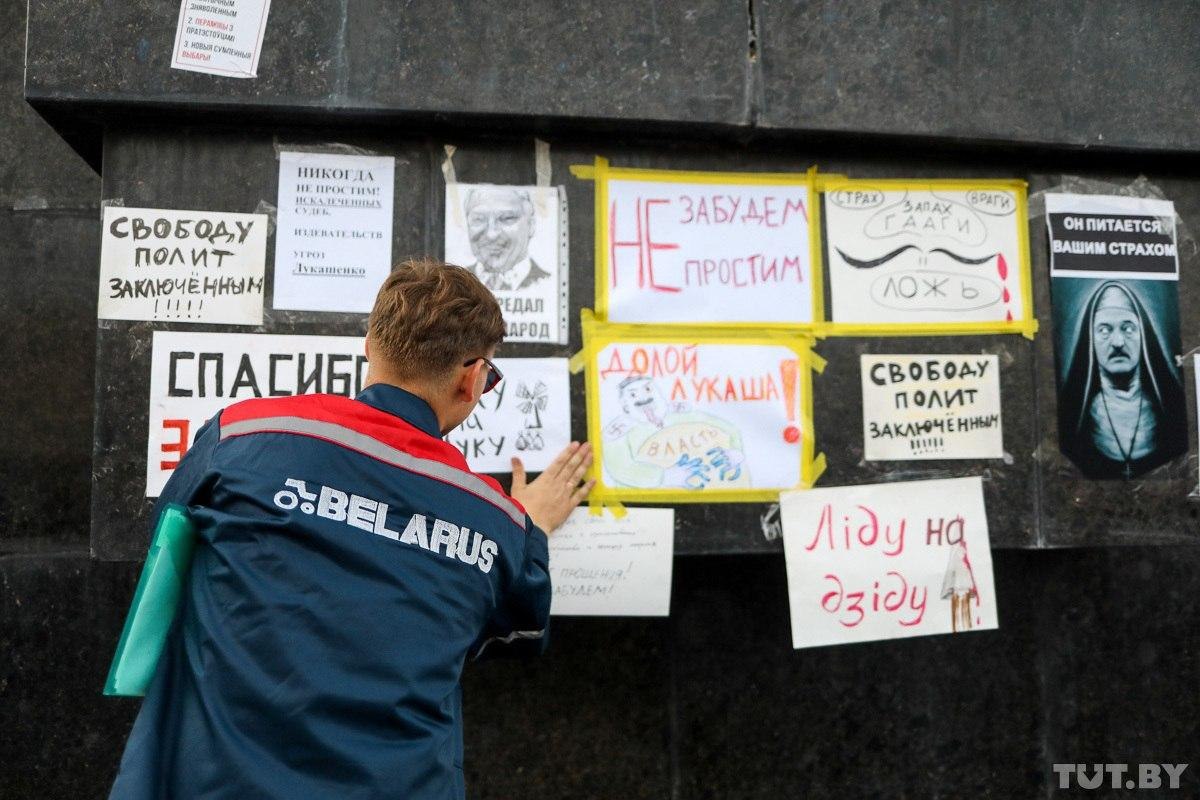 ЗНЯВОЛЕНЫМ
2. ПЕРАМОВЫ З
ПРАТЭСТОЎЦАМІ
3. НОВЫЯ СУМЛЕННЫЯ
ВЫБАРЫ!
СВОБОДУ
ПОЛИТ
ЗАКЛЮЧЁННЫМ
!!!!!
НИКОГДА
НЕ ПРОСТИМ!
ИСКАЛЕЧЕННЫХ
СУДЕБ,
ИЗДЕВАТЕЛЬСТВ
УГРОЗ
Лукашенко
РЕДАЛ
НАРОД
НЕ ЗАБУДЕМ
ПРОСТИМ
СТРАХ
ЗАПАХ
ГААГИ
ВРАГИ
ЛОЖЬ
ОН ПИТАЕТСЯ
ВАШИМ СТРАХОМ
СПАСИБО
ДОЛОЙ
ЛУКАША!
ВЛАСТЬ
СВОБОДУ
ПОЛИТ
ЗАКЛЮЧЁННЫМ
!!!!!!
BELARUS
ПРОЩЕНИЯ!
Ліду на
дзіду!
TUT.BY